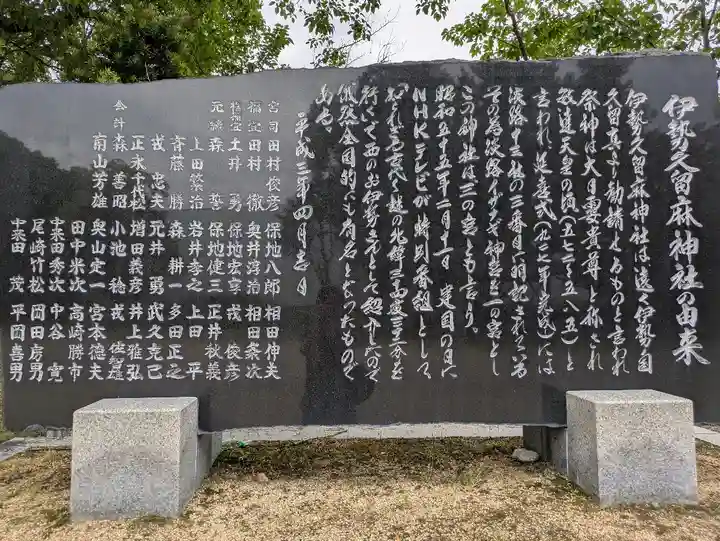 伊勢久留麻神社の由来
伊勢久留麻神社は遠く伊勢国
久留真より勧請せるものと言われ
祭神は大日孁貴尊と称され
敏達天皇の頃(五七二〜五八五)と
言われ延喜式(九〇七年完成)には
淡路十三社の三番目に明記されている
その為淡路イザナギ神宮を一の宮とし
この神社は三の宮とも言う。
昭和五十五年二月十一日建国の日に
NHKテレビが特別番組として
知られざる古代と題の北緯三四度三二分を
行くで西のお伊勢さんとして紹介したので
俄然全国的にも有名となったもので
ある。
平成三年四月吉日
宮司 田村俊彦 保地八郎 相田伸夫
福宮 田村徹 奥井淳治 相田粂次
総代 土井勇 保地宏享 戎俊彦
元総 森誓 保地健三 正井秋義
上田繁治 岩井孝之 上田平
斉藤勝 森耕一 多田正之
戎忠夫 元井勇 武久克己
正永 増田義彦 井上雅弘
会計 森善昭 小池稔 戎
南山芳雄 奥山定一 宮本德夫
田中米次 高崎勝市
中粟田秀次 中谷寛
尾崎竹松 岡田房男
中粟田茂 平岡喜男